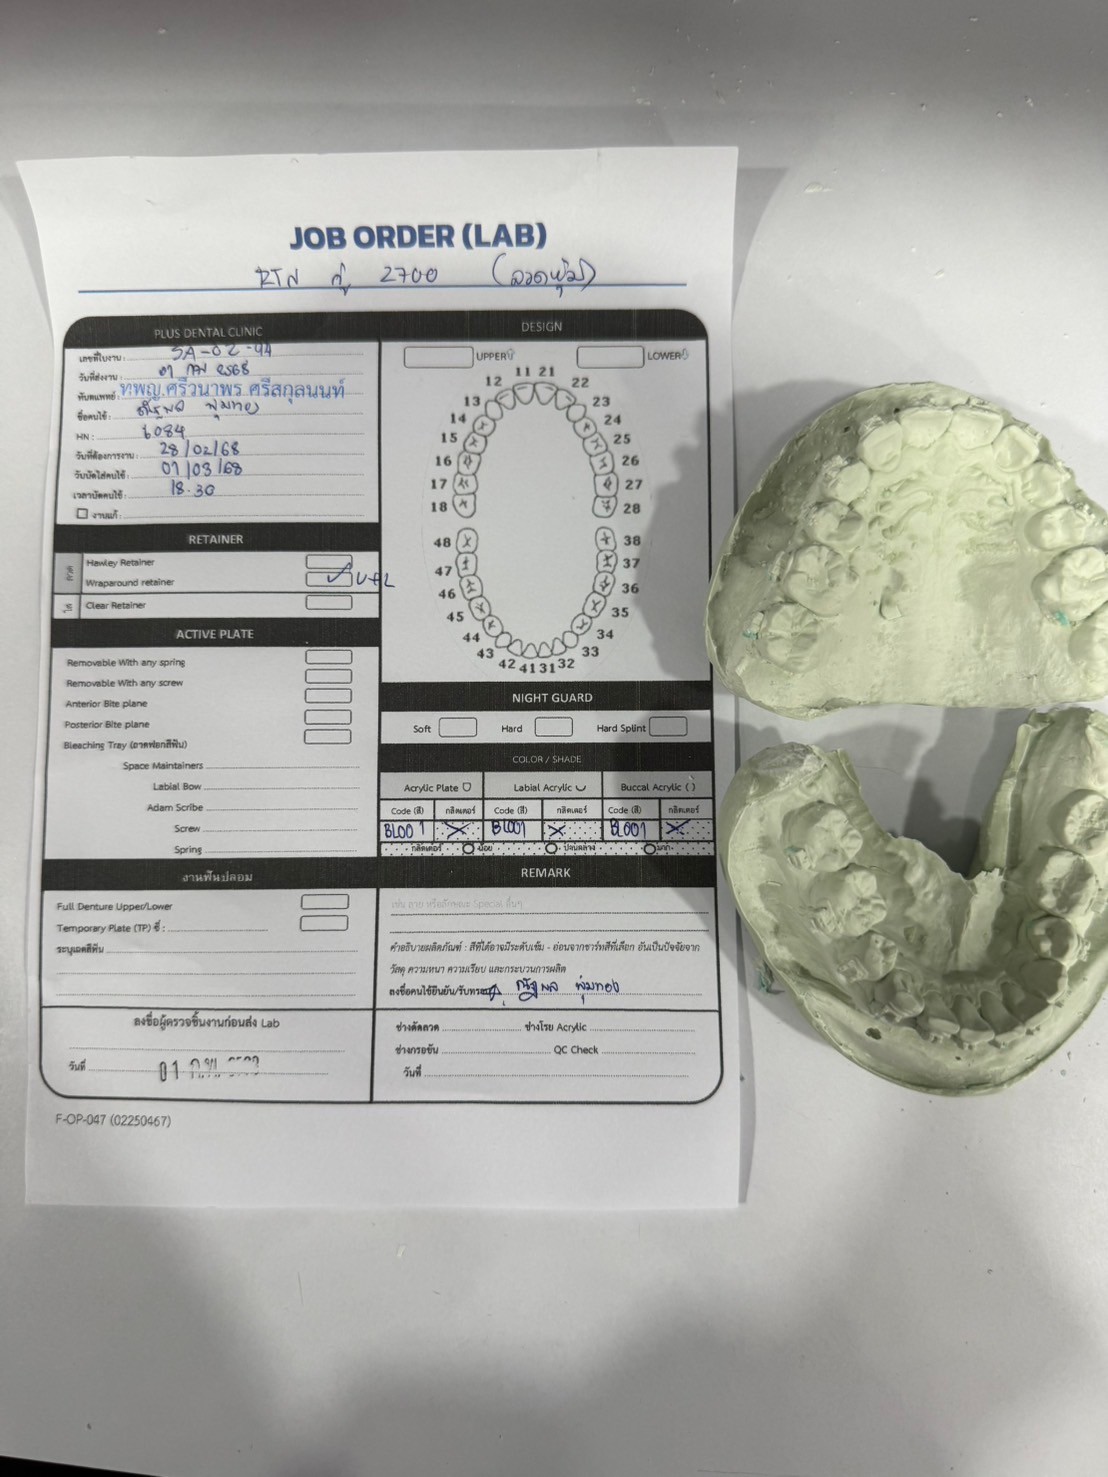 JOB ORDER (LAB)
RTN คู่ 2700 (ลวดหุ้ม)
PLUS DENTAL CLINIC
เลขที่ใบงาน : SA-02-44
วันที่ส่งงาน : 01 กพ 2568
ทันตแพทย์ : ทพญ.ศรีวนาพร ศรีสกุลนนท์
ชื่อคนไข้ : ณัฐพล พุ่มทอง
HN : 6084
วันที่ต้องการงาน : 28/02/68
วันนัดใส่คนไข้ : 01/03/68
เวลานัดคนไข้ : 18.30
งานแก้ :
RETAINER
Hawley Retainer
Wraparound retainer U+L
Clear Retainer
ACTIVE PLATE
Removable With any spring
Removable With any screw
Anterior Bite plane
Posterior Bite plane
Bleaching Tray (ถาดฟอกสีฟัน)
Space Maintainers
Labial Bow
Adam Scribe
Screw
Spring
งานฟันปลอม
Full Denture Upper/Lower
Temporary Plate (TP) ซี่ :
ระบุเฉดสีฟัน
ลงชื่อผู้ตรวจชิ้นงานก่อนส่ง Lab
วันที่ 01
DESIGN
UPPER LOWER
11 21
12 22
13 23
14 24
15 25
16 26
17 27
18 28
48 38
47 37
46 36
45 35
44 34
43 33
42 41 31 32
NIGHT GUARD
Soft Hard Hard Splint
COLOR / SHADE
Acrylic Plate Labial Acrylic Buccal Acrylic ( )
Code (สี) กลิตเตอร์ Code (สี) กลิตเตอร์ Code (สี) กลิตเตอร์
BL001 X BL001 X BL001 X
กลิตเตอร์ น้อย ปานกลาง มาก
REMARK
เช่น ลาย หรือลักษณะ Special อื่นๆ
คำอธิบายผลิตภัณฑ์ : สีที่ได้อาจมีระดับเข้ม - อ่อนจากชาร์ทสีที่เลือก อันเป็นปัจจัยจาก
วัสดุ ความหนา ความเรียบ และกระบวนการผลิต
ลงชื่อคนไข้ยืนยัน/รับทราบ ณัฐพล พุ่มทอง
ช่างดัดลวด ช่างโรย Acrylic
ช่างกรอขัด QC Check
วันที่
F-OP-047 (02250467)